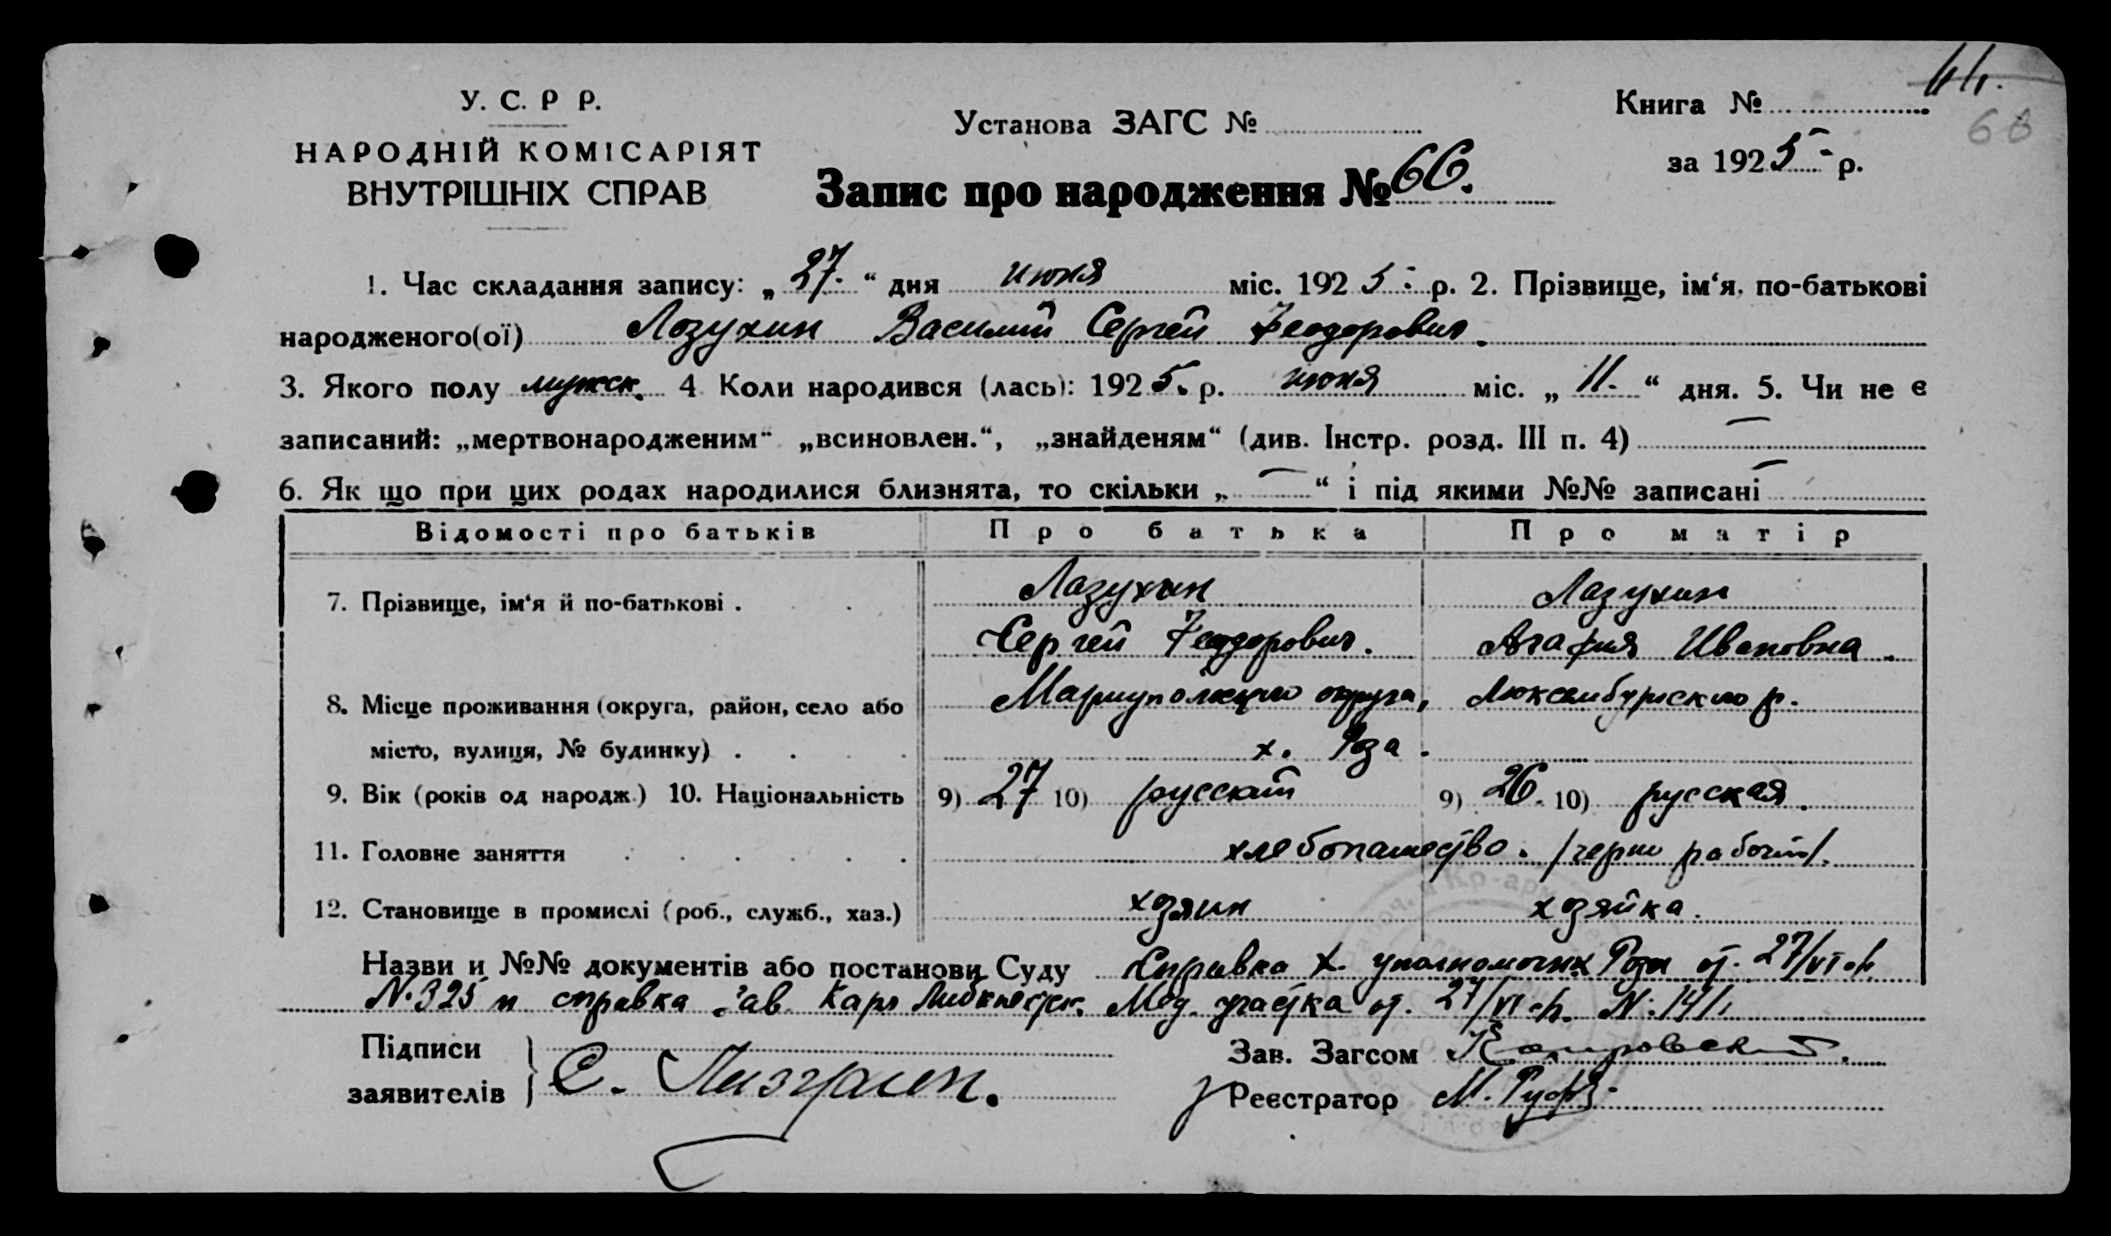 У. С. Р Р.
НАРОДНІЙ КОМІСАРІЯТ
ВНУТРІШНІХ СПРАВ
Установа ЗАГС №
Запис про народження № 66.
Книга №
за 1925 р.
66
1. Час складання запису: „27.“ дня июня міс. 1925 р. 2. Прізвище, ім‘я, по-батькові
народженого(ої) Лозухин Василий Сергей Феодорович.
3. Якого полу мужск. 4 Коли народився (лась): 1925. р. июня міс. „11.“ дня. 5. Чи не є
записаний: „мертвонародженим“ „всиновлен.“, „знайденям“ (див. Інстр. розд. III п. 4) —
6. Як що при цих родах народилися близнята, то скільки „—“ і під якими №№ записані —
Відомості про батьків Про батька Про матір
7. Прізвище, ім‘я й по-батькові . Лазухин Лазухин
Сергей Феодорович. Агафия Ивановна.
8. Місце проживання (округа, район, село або Мариупольского округа, Люксембургского р.
місто, вулиця, № будинку) . х. Роза.
9. Вік (років од народж.) 10. Національність 9) 27 10) русский 9) 26. 10) русская.
11. Головне заняття хлебопашество. /черно рабочий/.
12. Становище в промислі (роб., служб., хаз.) хозяин хозяйка.
Назви и №№ документів або постанови Суду Справка х. уполномочих Роза от. 27/VI
N. 325 и справка Зав. Карл Либкнехт. Мед. участка от. 27/VI N: 141
Підписи
заявителів С. Лазухин.
Зав. Загсом
Реєстратор М.